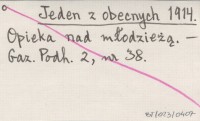 Jeden z obecnych 1914.
Opieka nad młodzieżą. —
Gaz. Podh. 2, nr 38.